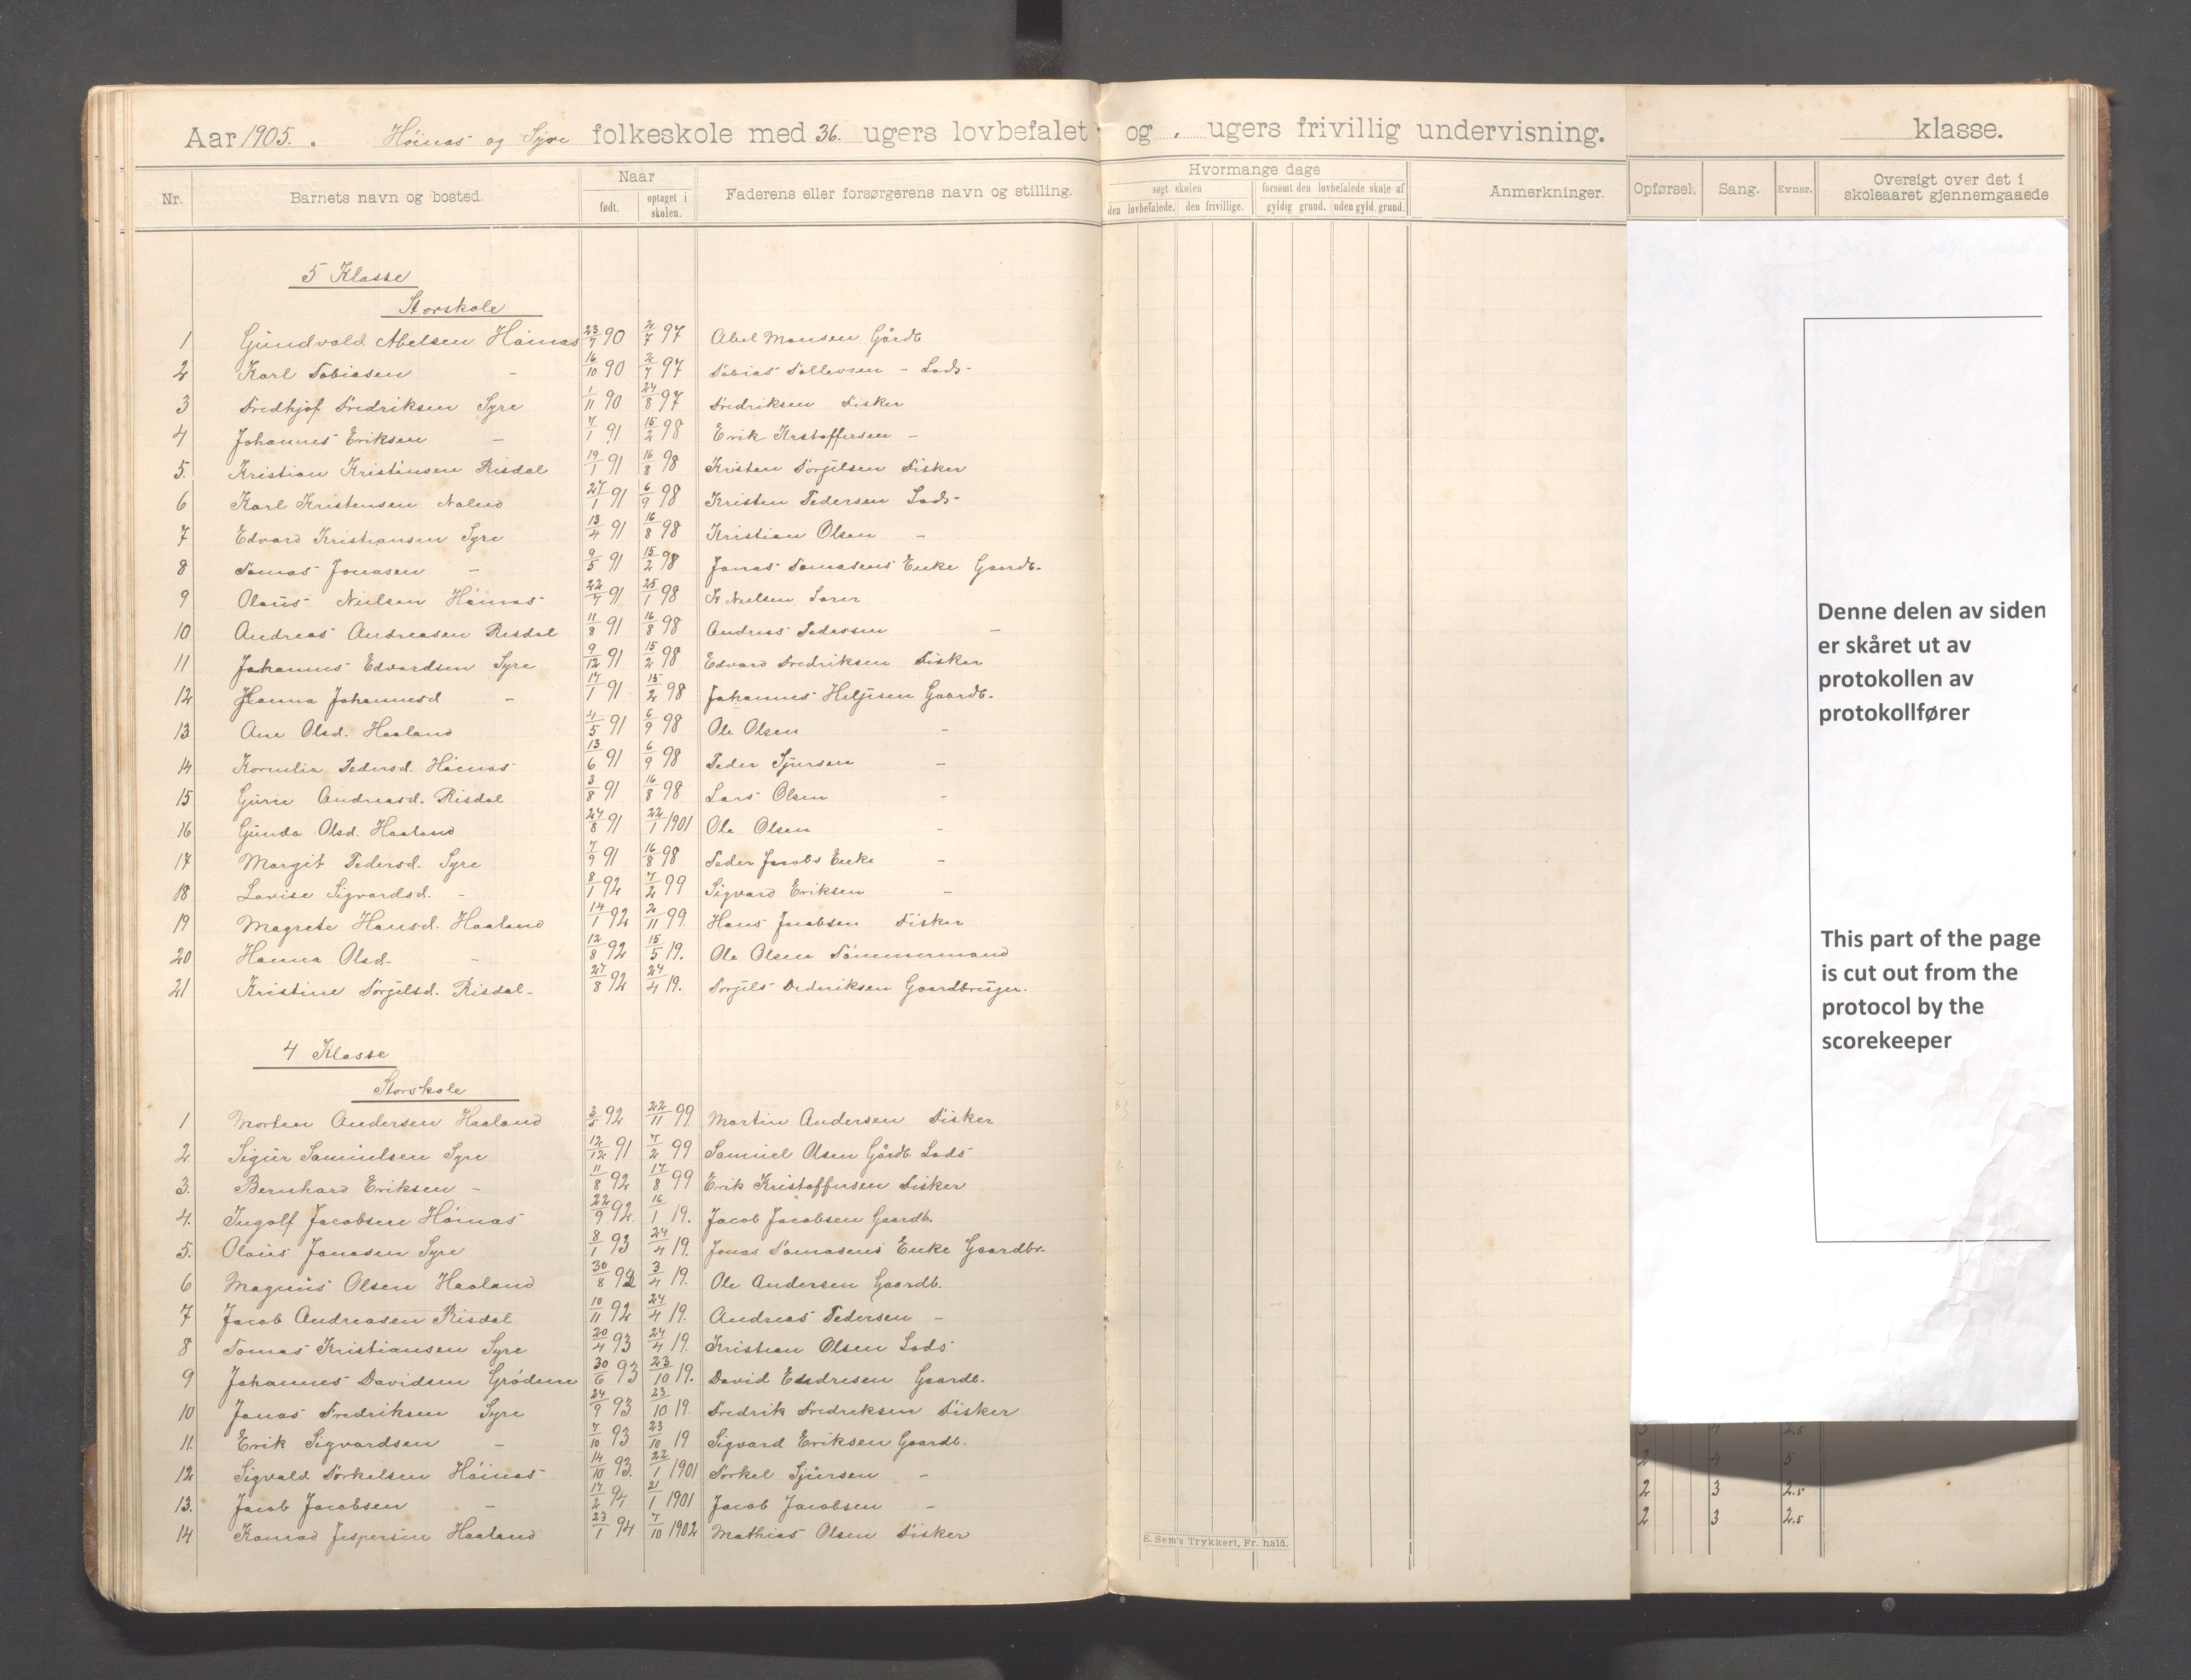 Aar 1905. Höinas og Syre folkeskole med 36. ugers lovbefalet og . ugers frivillig undervisning. klasse.
Nr. Barnets navn og bosted. Naar født. optaget i skolen. Faderens eller forsørgerens navn og stilling. Hvormange dage søgt skolen den lovbefalede. den frivillige. forsømt den lovbefalede skole af gyldig grund. uden gyld. grund. Anmerkninger. Opførsel. Sang. Evner. Oversigt over det i skoleaaret gjennemgaaede
5 Klasse
Storskole
1 Gundvald Abelsen Höinas 23/7 90 2/7 97 Abel Monsen Gårdb
2 Karl Tobiasen - 16/10 90 2/7 97 Tobias Tollevsen - Lods-
3 Fredhjof Fredriksen Syre 1/11 90 24/8 97 Fredriksen Fisker
4 Johannes Eriksen - 7/1 91 15/2 98 Erik Krstoffersen -
5. Kristian Kristinsen Risdal 19/1 91 16/8 98 Kristen Torjilsen Fisker
6 Karl Kristensen 27/1 91 6/9 98 Kristen Pedersen Lods-
7 Edvard Kristiansen Syre 13/4 91 16/8 98 Kristian Olsen -
8 Tomas Jonasen - 9/5 91 15/2 98 Jonas Tomasens Enke Gaardb.
9 Olaüs Nielsen Höinas 22/7 91 25/1 98 K Nielsen Lærer
10 Andreas Andreasen Risdal 11/8 91 16/8 98 Andreas Pedersen -
11 Johannes Edvardsen Syre 9/12 91 15/2 98 Edvard Fredriksen Fisker
12 Hanna Johannesd - 17/1 91 15/2 98 Johannes Heljesen Gaardb.
13 Ane Olsd. Haaland 4/5 91 6/9 98 Ole Olsen -
14 Kornelia Pedersd. Höinas 13/6 91 6/9 98 Peder Sjursen -
15 Gürie Andreasd. Risdal 3/8 91 16/8 98 Lars Olsen -
16 Günda Olsd. Haaland 24/8 91 22/1 1901 Ole Olsen -
17 Margit Pedersd. Syre 7/9 91 16/8 98 Peder Jacobs Enke -
18 Lovise Sigvardsd. - 8/1 92 7/2 99 Sigvard Eriksen -
19 Magrete Hansd. Haaland 14/1 92 2/11 99. Hans Jacobsen Fisker
20 Hanna Olsd. - 12/8 92 15/5 19. Ole Olsen Tömmermand
21 Kristine Torjilsd. Risdal- 27/8 92 24/4 19. Torjils Dideriksen Gaardbruger.
4 Klasse
Storskole
1 Morten Andersen Haaland 3/5 92 22/11 99. Martin Andersen Fisker
2. Sigür Samuelsen Syre 12/12 91 7/2 99 Samuel Olsen Gårdb. Lods
3. Bernhard Eriksen - 11/8 92 17/8 99 Erik Kristoffersen Fisker
4. Ingolf Jacobsen Höinas 22/9 92. 16/1 19. Jacob Jacobsen Gaardb.
5. Olaüs Jonasen Syre 8/1 93 24/4 19. Jonas Tomasens Enke Gaardbr.
6 Magnüs Olsen Haaland 30/8 92 3/4 19. Ole Andersen Gaardb.
7 Jacob Andreasen Risdal 10/11 92 24/4 19. Andreas Pedersen -
8 Tomas Kristiansen Syre 20/4 93 24/4 19. Kristian Olsen Lods
9 Johannes Davidsen Grödem 30/6 93 23/10 19. David Endresen Gaardb.
10 Jonas Fredriksen Syre 24/9 93 23/10 19. Fredrik Fredreksen Fisker
11. Erik Sigvardsen - 7/10 93 23/10 19 Sigvard Eriksen Gaardb.
12 Sigvald Torkelsen Höinas 14/10 93. 22/1 1901 Torkel Sjürsen -
13. Jacob Jacobsen - 17/2 94 21/1 1901 Jacob Jacobsen -
14 Konrad Jespersen Haaland 23/1 94 7/10 1902 Mathias Olsen Fisker
E. Sem's Trykkeri, Fr. hald.
Denne delen av siden
er skåret ut av
protokollen av
protokollfører
This part of the page
is cut out from the
protocol by the
scorekeeper
3 4 2.5
2 4 5
2 3 2.5
2 3 2.5